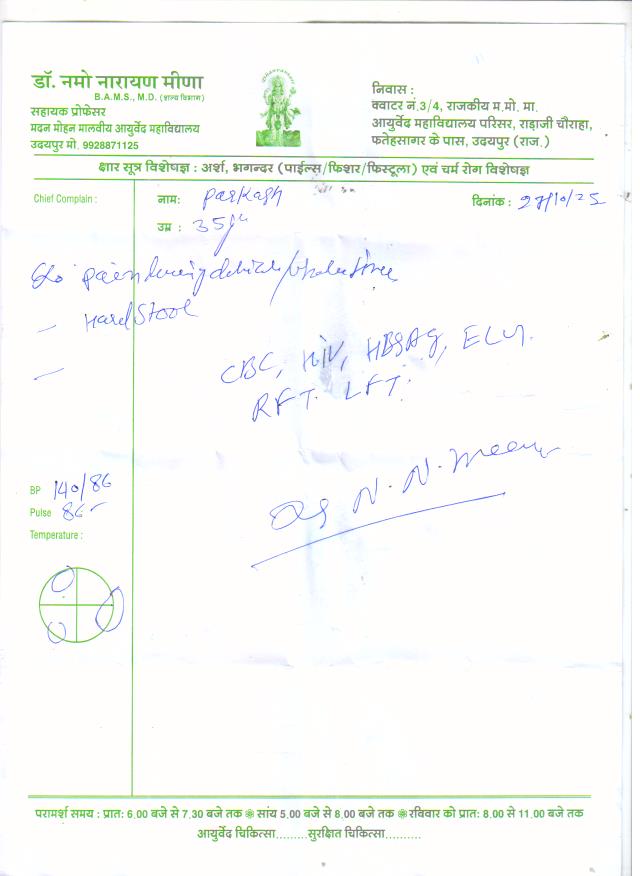 डॉ. नमो नारायण मीणा
B.A.M.S., M.D. (शल्य विभाग)
सहायक प्रोफेसर
मदन मोहन मालवीय आयुर्वेद महाविद्यालय
उदयपुर मो. 9928871125
निवास :
क्वाटर नं.3/4, राजकीय म.मो. मा.
आयुर्वेद महाविद्यालय परिसर, राड़ाजी चौराहा,
फतेहसागर के पास, उदयपुर (राज.)
क्षार सूत्र विशेषज्ञ : अर्श, भगन्दर (पाईल्स/फिशर/फिस्टूला) एवं चर्म रोग विशेषज्ञ
Chief Complain :
नाम: Parkash
दिनांक : 27/10/25
उम्र : 35
pain during
- Hard Stool
-
CBC, HIV, HBSAG,
RFT. LFT.
N. N. Meena
BP 140/86
Pulse 86
Temperature :
परामर्श समय : प्रातः 6.00 बजे से 7.30 बजे तक ❁ सांय 5.00 बजे से 8.00 बजे तक ❁ रविवार को प्रातः 8.00 से 11.00 बजे तक
आयुर्वेद चिकित्सा.........सुरक्षित चिकित्सा..........